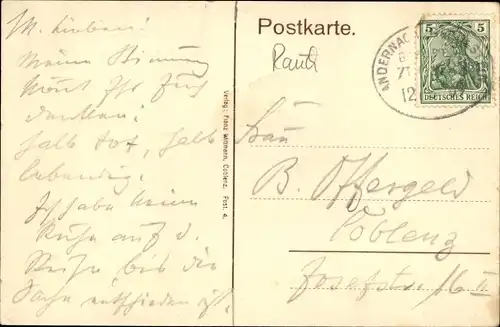 M. Lieben!
Meine Stimmung
könnt Ihr Euch
denken!
halb tot, halb
lebendig.
Ich habe keine
Ruhe auf d.
Reise, bis die
Sache entschieden ist.
Verlag: Franz Wittmann, Coblenz. Post. 4.
Postkarte.
ANDERNACH
12
5 5
DEUTSCHES REICH
Frau
B. Offergeld
Coblenz
Josefstr. 16 II